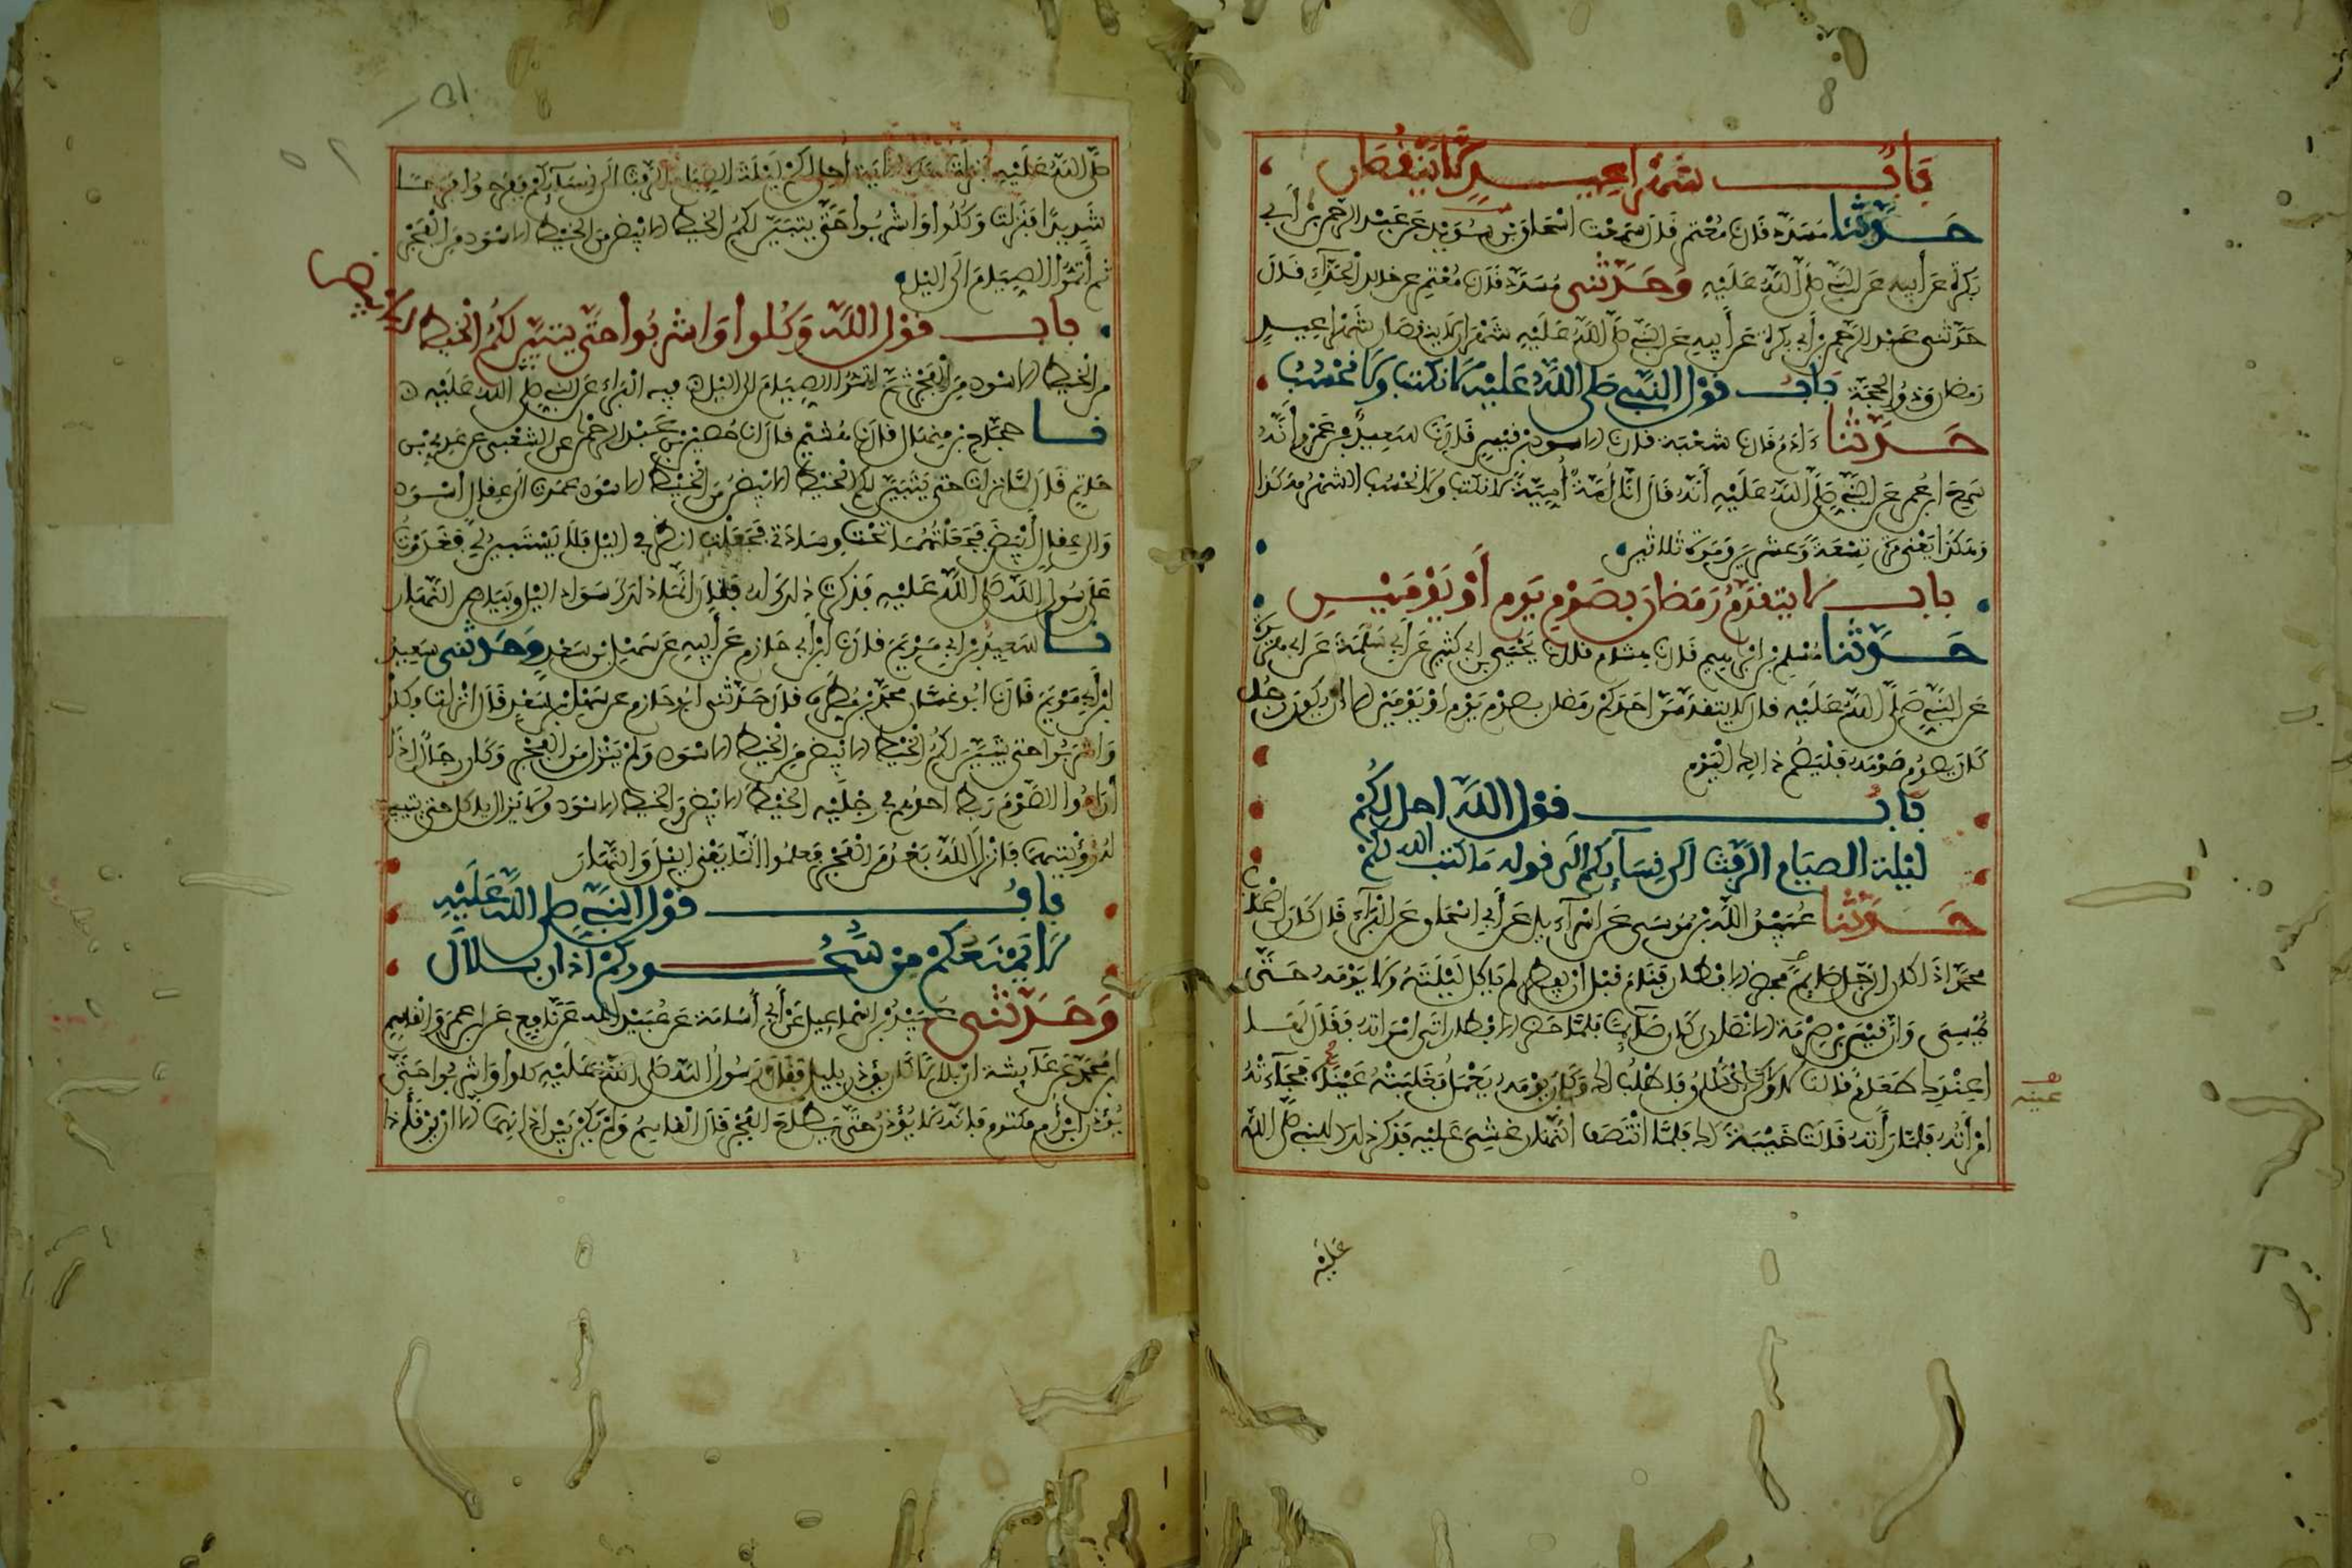 باب شهرا عيد لا ينقصان
حدثنا مسدد قال نا معتمر قال سمعت إسحاق بن سويد عن عبد الرحمن بن أبي
بكرة عن أبيه عن النبي صلى الله عليه وحدثني مسدد قال نا معتمر عن خالد الحذاء قال
حدثني عبد الرحمن بن أبي بكرة عن أبيه عن النبي صلى الله عليه شهران لا ينقصان شهرا عيد
رمضان وذو الحجة باب قول النبي صلى الله عليه لا نكتب ولا نحسب
حدثنا ءادم قال نا شعبة قال نا الاسود بن قيس قال نا سعيد بن عمرو أنه
سمع ابن عمر عن النبي صلى الله عليه أنه قال انا أمة أمية لا نكتب ولا نحسب الشهر هكذا
وهكذا يعني مرة تسعة وعشرين ومرة ثلاثين
باب لا يتقدم رمضان بصوم يوم أو يومين
حدثنا مسلم بن ابراهيم قال نا هشام قال نا يحيى بن أبي كثير عن أبي سلمة عن أبي هريرة
عن النبي صلى الله عليه قال لا يتقدمن احدكم رمضان بصوم يوم او يومين الا ان يكون رجل
كان يصوم صومه فليصم ذالك اليوم
باب قول الله احل لكم
ليلة الصيام الرفث الى نسآئكم الى قوله ما كتب الله لكم
حدثنا عبيد الله بن موسى عن اسرآءيل عن أبي اسحاق عن البرآء قال كان اصحاب
محمد اذا كان الرجل صايما فحضر الافطار فنام قبل أن يفطر لم ياكل ليلته ولا يومه حتى
يمسي وان قيس بن صرمة الانصاري كان صآيما فلما حضر الافطار اتى امراته فقال لها
اعندك طعام قالت لا ولكن انطلق فاطلب لك وكان يومه يعمل فغلبته عيناه فجآءته
عينه
امرأته فلما رأته قالت خيبة لك فلما انتصف النهار غشي عليه فذكر ذلك للنبي صلى الله
عليه
صلى الله عليه فنزلت هذه الآية أحل لكم ليلة الصيام الرفث الى نسآئكم ففرحوا فرحا
شديدا فنزلت وكلوا واشربوا حتى يتبين لكم الخيط الابيض من الخيط الاسود من الفجر
ثم أتموا الصيام الى اليل
باب قول الله وكلوا واشربوا حتى يتبين لكم الخيط الابيض
من الخيط الاسود من الفجر ثم اتموا الصيام الى اليل فيه البراء عن النبي صلى الله عليه
نا حجاج بن منهال قال نا هشيم قال انا حصين بن عبد الرحمن عن الشعبي عن عدي بن
حاتم قال لما نزلت حتى يتبين لكم الخيط الابيض من الخيط الاسود عمدت الى عقال أسود
والى عقال أبيض فجعلتهما تحت وسادتي فجعلت انظر في اليل فلا يستبين لي فغدوت
على رسول الله صلى الله عليه فذكرت ذلك له فقال انما ذلك سواد اليل وبياض النهار
نا سعيد بن ابي مريم قال نا ابن أبي حازم عن أبيه عن سهل بن سعد وحدثني سعيد
ابن أبي مريم قال نا ابو غسان محمد بن مطرف قال حدثني ابو حازم عن سهل بن سعد قال انزلت وكلوا
واشربوا حتى يتبين لكم الخيط الابيض من الخيط الاسود ولم ينزل من الفجر وكان رجال اذا
أرادوا الصوم ربط احدهم في رجليه الخيط الابيض والخيط الاسود ولا يزال ياكل حتى يتبين
له رؤيتهما فانزل الله بعد من الفجر فعلموا انما يعني اليل والنهار
باب قول النبي صلى الله عليه
لا يمنعكم من سحوركم أذان بلال
وحدثني عبيد بن اسماعيل عن أبي أسامة عن عبيد الله عن نافع عن ابن عمر والقاسم
ابن محمد عن عآيشة ان بلالا كان يؤذن بليل فقال رسول الله صلى الله عليه كلوا واشربوا حتى
يؤذن ابن أم مكتوم فانه لا يؤذن حتى يطلع الفجر قال القاسم ولم يكن بين اذانهما الا ان يرقا ذا